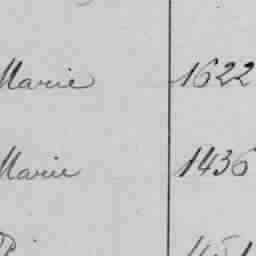 Marie 1622
Marie 1436